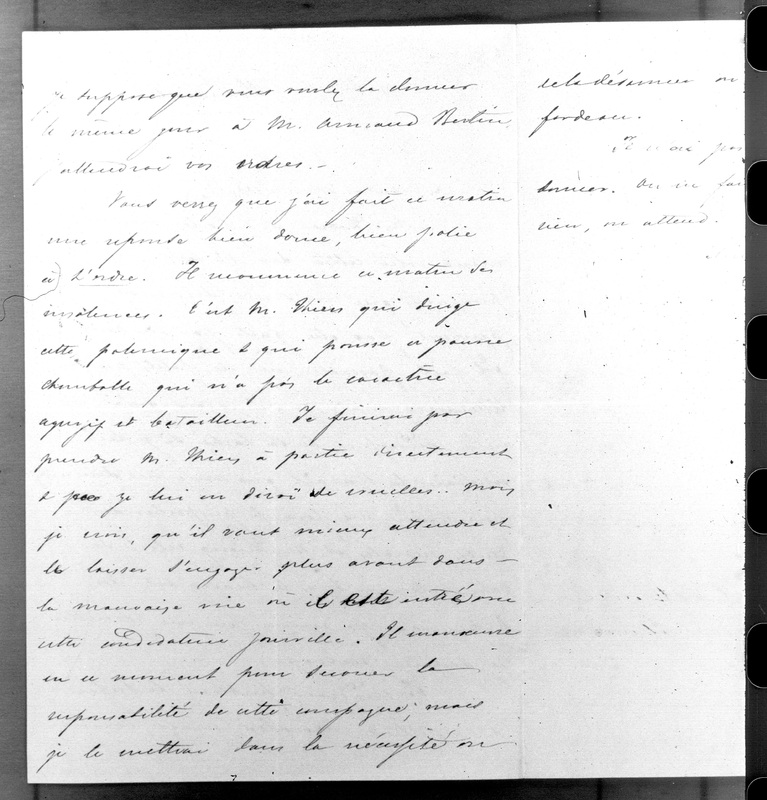 je suppose que vous voulez la donner
le même jour à M. Armand Bertin.
j'attendrai vos ordres. -
Vous verrez que j'ai fait ce matin
une reponse bien douce, bien polie
à L'ordre. Il recommence ce matin ses
insolences. C'est M. Thiers qui dirige
cette polemique & qui pousse ce pauvre
Chambolle qui n'a pas le caractère
agressif et batailleur. Je finirai par
prendre M. Thiers à partie directement
& je lui en dirai de cruelles.. Mais
je crois, qu'il vaut mieux attendre et
le laisser s'engager plus avant dans -
la mauvaise voie où il est entré avec
cette candidature Joinville. Il manœuvre
en ce moment pour secouer la
responsabilité de cette campagne; mais
je le mettrai dans la nécessité ou
de la désavouer ou
fardeau.
Je n'ai pas
donner. On ne fai
rien, on attend.